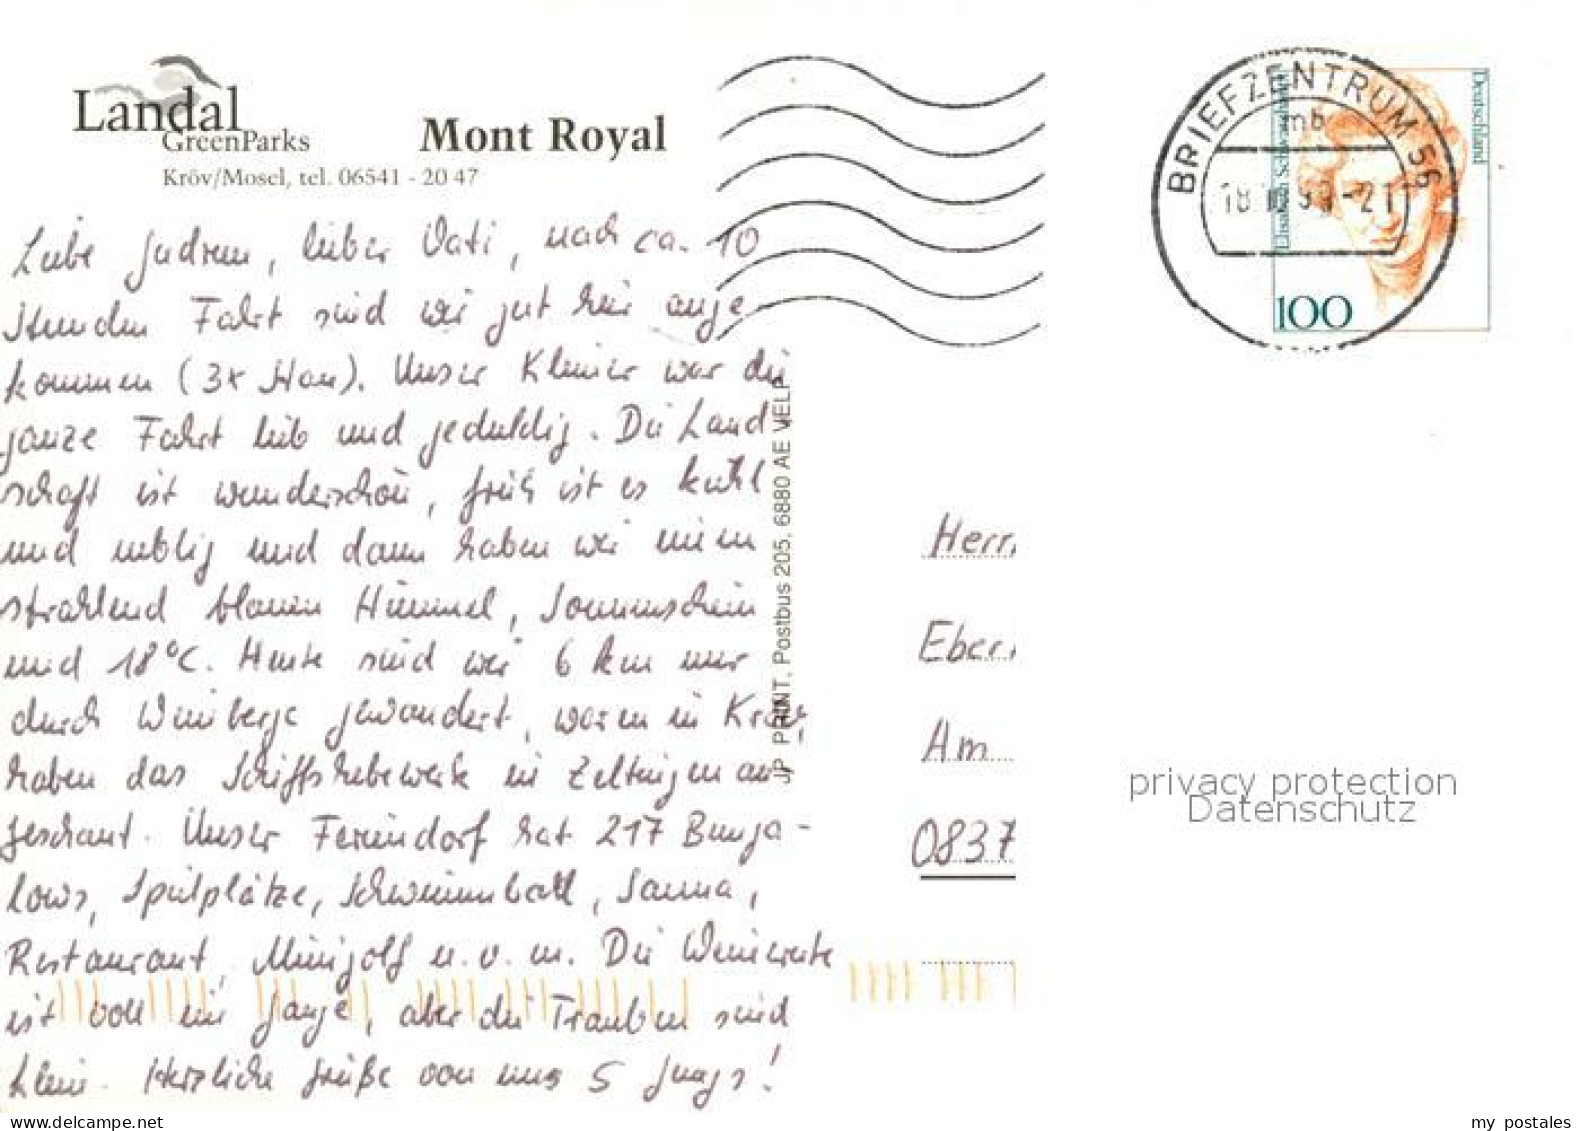 Landal
GreenParks
Mont Royal
Kröv/Mosel, tel. 06541 - 20 47
Liebe Judrun, lieber Vati, nach ca. 10
Stunden Fahrt sind wir gut hier ange-
kommen (3x Stau). Unser Kleiner war die
ganze Fahrt lieb und geduldig. Die Land-
schaft ist wunderschön, früh ist es kühl
und neblig und dann haben wir einen
strahlend blauen Himmel, Sonnenschein
und 18°C. Heute sind wir 6 km nur
durch Weinberge gewandert, waren in Kröv,
haben das Schiffshebewerk in Zeltingen an-
geschaut. Unser Feriendorf hat 217 Bunga-
lows, Spielplätze, Schwimmbad, Sauna,
Restaurant, Minigolf u.v.m. Die Weinernte
ist voll im Gange, aber die Trauben sind
klein. Herzliche Grüße von uns 5 Jungs!
JP PRINT, Postbus 205, 6880 AE VELP
BRIEFZENTRUM 56
mb
18. 9-21
Deutschland
Elisabeth Schwarzhaupt
100
Herrn
Eber
Am
0837
privacy protection
Datenschutz
www.delcampe.net
my postales